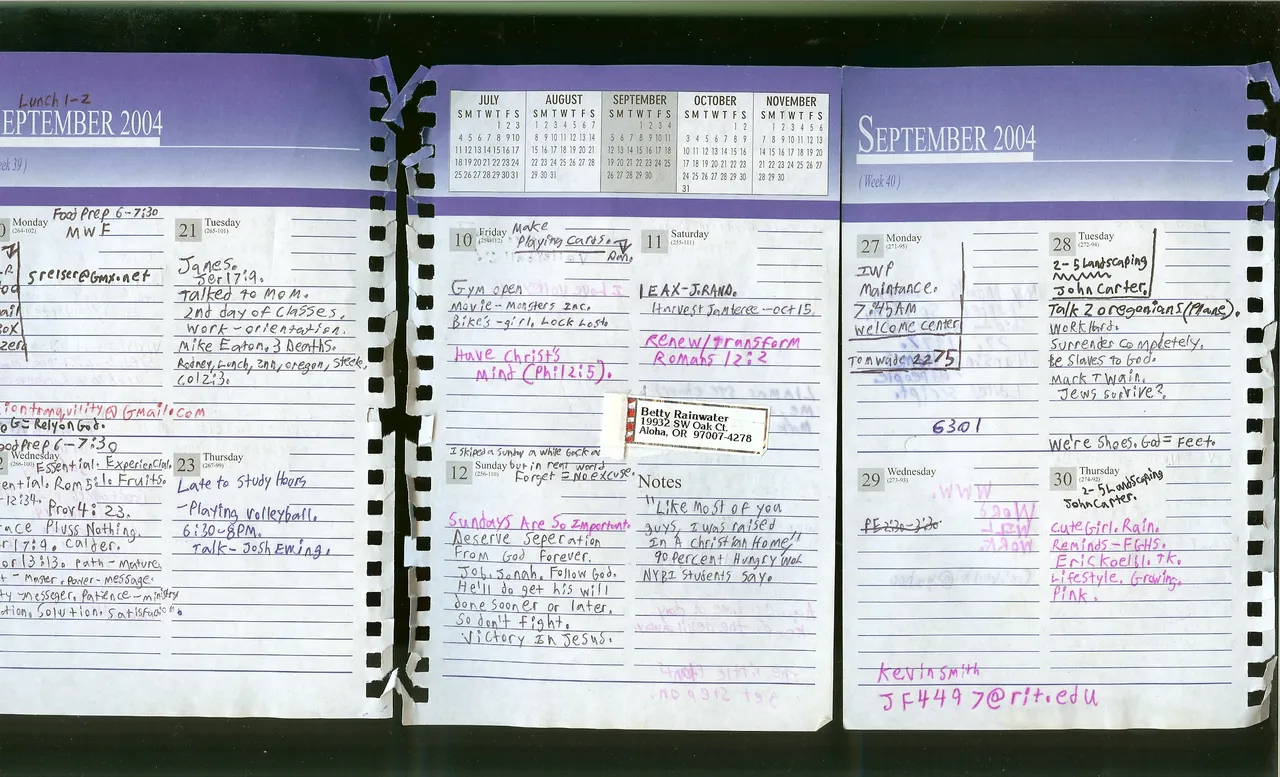 Lunch 1-2
EPTEMBER 2004
eek 39 )
Monday
(264-102)
Food Prep 6-7:30
MWF
sreiser@gmx.net
21 Tuesday
(265-101)
Janes.
Jer 17:9.
Talked to Mom.
2nd day of Classes.
Work-orientation.
Mike Eaton, 3 Deaths.
Rodney, Lunch, Inn, oregon, Steele,
Col 2:3.
iontranquility@Gmail.com
G= Rely on God.
ood Prep 6-7:30
Wednesday
(266-100)
Essential. Experiencial.
ential. Rom 5:1. Fruits.
12:34.
Prov 4: 23.
race Pluss Nothing.
r 17:9. Calder.
or 13:13. Path-Mature.
t- Mager, Power-message.
ty-messeger, Patience-ministry
otion, Solution, Satisfac
23 Thursday
(267-99)
Late to Study Hours
-Playing Volleyball.
6:30-8PM.
Talk-Josh Ewing.
JULY
S M T W T F S
1 2 3
4 5 6 7 8 9 10
11 12 13 14 15 16 17
18 19 20 21 22 23 24
25 26 27 28 29 30 31
AUGUST
S M T W T F S
1 2 3 4 5 6 7
8 9 10 11 12 13 14
15 16 17 18 19 20 21
22 23 24 25 26 27 28
29 30 31
SEPTEMBER
S M T W T F S
1 2 3 4
5 6 7 8 9 10 11
12 13 14 15 16 17 18
19 20 21 22 23 24 25
26 27 28 29 30
OCTOBER
S M T W T F S
1 2
3 4 5 6 7 8 9
10 11 12 13 14 15 16
17 18 19 20 21 22 23
24 25 26 27 28 29 30
31
NOVEMBER
S M T W T F S
1 2 3 4 5 6
7 8 9 10 11 12 13
14 15 16 17 18 19 20
21 22 23 24 25 26 27
28 29 30
10 Friday
Make
Playing Cards.
Dan.
Gym open
Movie-Monsters Inc.
Bike's-girl, Lock Lost.
Have Christ's
Mind (Phil 2:5).
11 Saturday
(255-111)
LEAX-J.RAND.
Harvest Jamboree-oct 15.
Renew/Transform
Romans 12:2
Betty Rainwater
19932 SW Oak Ct.
Aloha, OR 97007-4278
I skiped a Sunday a while back
but in real world
Forget = No excuse.
12 Sunday
(256-110)
Sundays Are So Important.
Deserve Seperation
From God Forever.
Job, Jonah, Follow God.
He'll do get his will
done sooner or later.
So don't fight.
Victory In Jesus.
Notes
"Like Most of you
guys, I was raised
In A Christian Home!"
90 Percent Hungry
NYBI Students Say.
SEPTEMBER 2004
( Week 40 )
27 Monday
(271-95)
IWP
Maintance.
7:45AM
Welcome Center
Tom Wade 2275
6301
28 Tuesday
(272-94)
2-5 Landscaping
John Carter.
Talk 2 oregonians (Plane).
Work Hard.
Surrender Completely.
Be Slaves to God.
Mark Twain.
Jews Survive?
We're Shoes. God = Feet.
29 Wednesday
(273-93)
PE 2:30-3:30
30 Thursday
(274-92)
2-5 Landscaping
John Carter.
Cute Girl. Rain.
Reminds-FGHS.
Erickoelbl. TK.
Lifestyle. Growing.
Pink.
Kevin Smith
JF4497@rit.edu